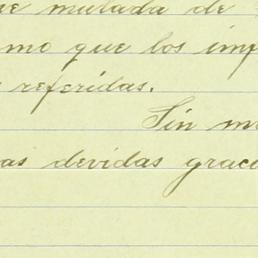 ue mulada de
mo que los imp
referidas.
Sin m
as devidas graci